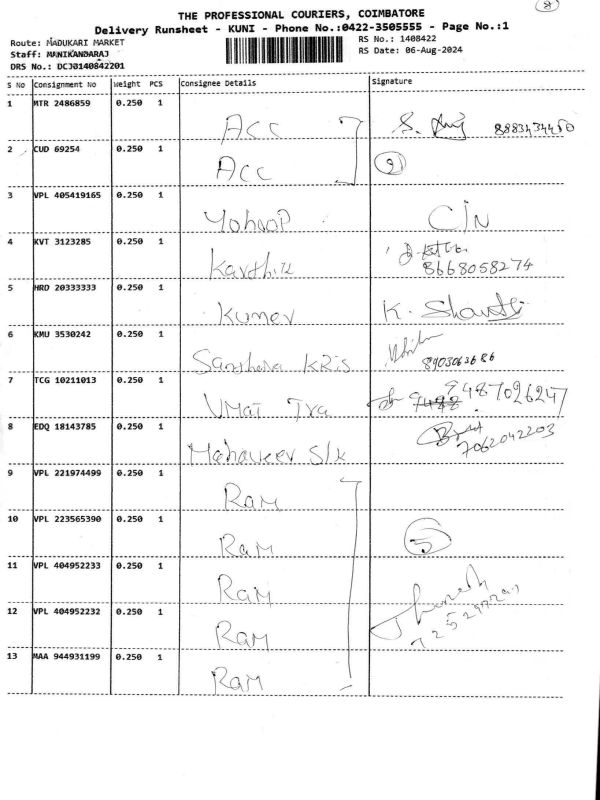 8
THE PROFESSIONAL COURIERS, COIMBATORE
Delivery Runsheet - KUNI - Phone No.:0422-3505555 - Page No.:1
Route: MADUKARI MARKET
RS No.: 1408422
Staff: MANIKANDARAJ
RS Date: 06-Aug-2024
DRS No.: DCJ0140842201
S No Consignment No Weight PCS Consignee Details Signature
1 MTR 2486859 0.250 1 Acc
2 CUD 69254 0.250 1 Acc 2
3 VPL 405419165 0.250 1 CIN
4 KVT 3123285 0.250 1 Karthik 8668058274
5 HRD 20333333 0.250 1 Kumer K.
6 KMU 3530242 0.250 1
7 TCG 10211013 0.250 1 UMAI 9487026247
8 EDQ 18143785 0.250 1 Mahaveer S/k 7062042203
9 VPL 221974499 0.250 1 RAM
10 VPL 223565390 0.250 1 RAM 5
11 VPL 404952233 0.250 1 RAM
12 VPL 404952232 0.250 1 RAM
13 MAA 944931199 0.250 1 RAM